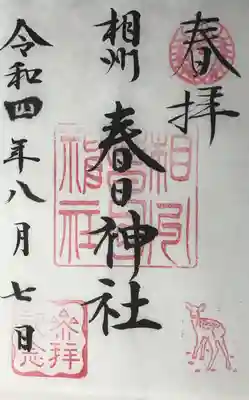 春拝
相州
春日神社
令和四年八月七日
相州
春日
神社
参拝
記念